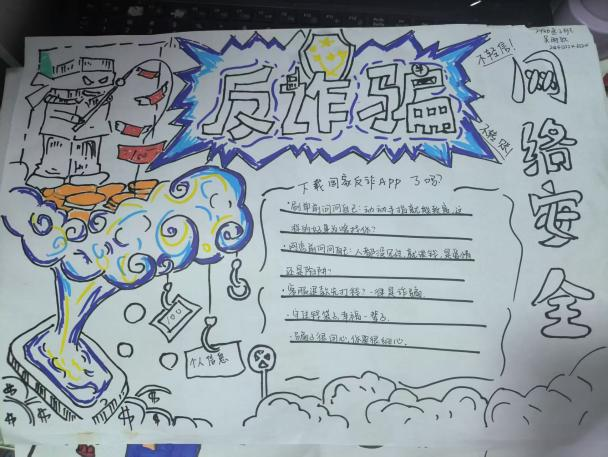 反诈骗
不轻信！
网络安全
下载国家反诈APP了吗？
·刷单前问问自己：动动手指就能致富，这
样的好事为啥找你？
·网恋前问问自己：人都没见过，就要钱，是爱情
还是陷阱？
·客服退款先打钱？一律是诈骗
·守住钱袋子，幸福一辈子
·骗子很用心，你要很细心
个人信息
100